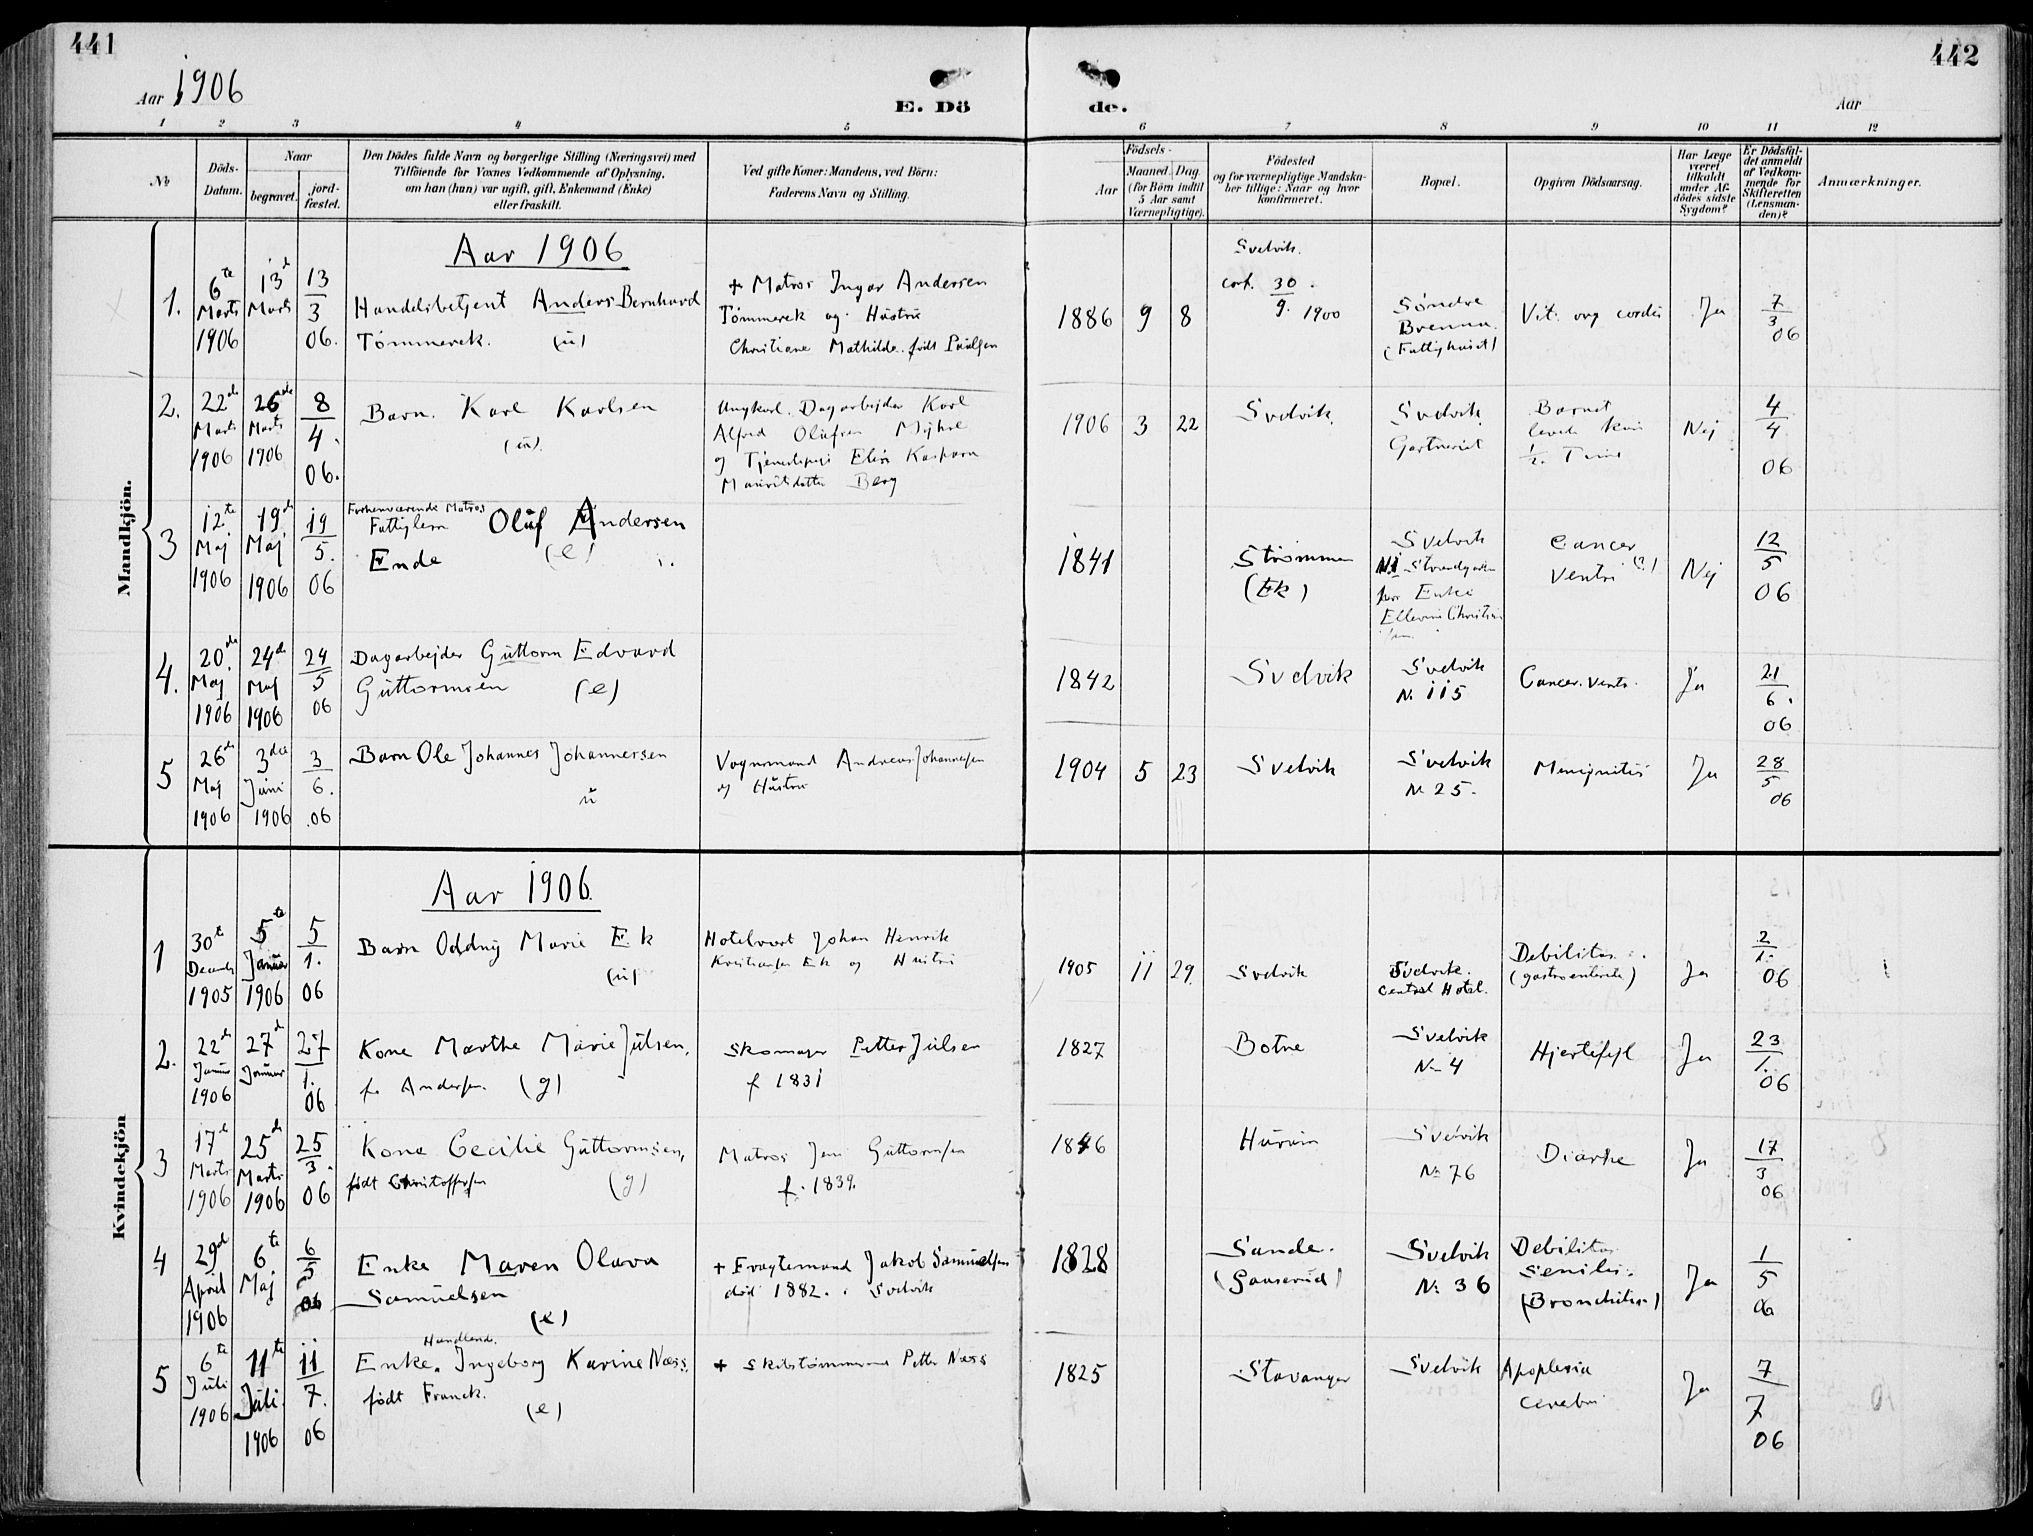 441
442
Aar 1906
E. Dö
de.
Aar
1 2 3 4 5 6 7 8 9 10 11 12
No
Döds-
Datum.
Naar
begravet.
jord-
fæstet.
Den Dödes fulde Navn og borgerlige Stilling (Næringsvei) med
Tilföiende for Voxnes Vedkommende af Oplysning,
om han (hun) var ugift, gift, Enkemand (Enke)
eller fraskilt.
Ved gifte Koner: Mandens, ved Börn:
Faderens Navn og Stilling.
Födsels-
Aar
Maaned. Dag.
(for Börn indtil
5 Aar samt
Værnepligtige).
Födested
og for værnepligtige Mandska-
ber tillige: Naar og hvor
konfirmeret.
Bopæl.
Opgiven Dödsaarsag.
Har Læge
været
tilkaldt
under Af-
dödes sidste
Sygdom?
Er Dödsfal-
det anmeldt
af Vedkom-
mende for
Skifteretten
(Lensman-
den)?
Anmærkninger.
Mandkjön.
Aar 1906
1.
6te
Marts
1906
13d
Marts
13
3
06.
Handelsbetjent Anders Bernhard
Tømmerek. (ü)
+ Matros Ingar Andersen
Tømmerek og Hustru
Christiane Mathilde. født Paulsen
1886 9 8
Svelvik.
conf. 30
9. 1900
Søndre
Brenna.
(Fattighuset)
Vit. org cordis
Ja
7
3
06
2.
22de
Marts
1906
26de
Marts
1906
8
4.
06.
Barn. Karl Karlsen
(ü).
Ungkarl. Dagarbejder Karl
Alfred Olufsen
og Elise Kaspara
Berg
1906 3 22
Svelvik.
Svelvik.
Gartneriet
Barnet
levede kun
1/2. Time
Nej
4
4
06
3
12te
Maj
1906
19de
Maj
1906
19
5.
06
Forhenværende Matros
Fattiglem Oluf Andersen
Ende (e)
1841
Strømmen
(Ek)
Svelvik
Strandgaden
hos Enke
Cancer
Ventri (?)
Nej
12
5
06
4.
20de
Maj
1906
24de
Maj
1906
24
5
06
Dagarbejder Guttorm Edvard
Guttormsen (e)
1842
Svelvik
Svelvik
N. 115
Cancer. ventr.
Ja
21
6.
06
5
26de
Maj
1906
3die
Juni
1906
3
6.
06
Barn Ole Johannes Johannesen
ü
Vognmand Andreas Johannesen
og Hustru
1904 5 23
Svelvik
Svelvik
N. 25.
Meningnitis
Ja
28
5
06
Kvindekjön
Aar 1906.
1
30te
Decemb
1905
5te
Januar
1906
5
1.
06
Barn Oddny Marie Ek
(ü)
Hotelvert Johan Henrik
Kristiansen Ek og Hustru
1905 11 29.
Svelvik
Svelvik.
Central Hotel.
Debilitas.
(gastroenterite)
Ja
2
1.
06
2.
22de
Januar
1906
27d
Januar
27
1.
06
Kone Marthe Marie Julsen,
f. Andersen. (g)
Skomager Petter Julsen
f. 1831
1827
Botne
Svelvik
No 4
Hjertefejl
Ja
23
1.
06
3
17d
Marts
1906
25de
Marts
1906
25
3.
06
Kone Cecilie Guttormsen,
født Christoffersen (g)
Matros Jens Guttormsen
f. 1839.
1846
Hurum
Svelvik
No 76
Diarhe
Ja
17
3
06
4
29d
April
1906
6te
Maj
6
5
06
Enke Maren Olava
Samuelsen
(e)
+ Fragtemand Jakob Samuelsen
død 1882. Svelvik
1828
Sande.
Svelvik
N. 36
Debilitas
senilis.
(Bronchitis)
Ja
1
5
06
5
6te
Juli
1906
11te
Juli.
1906
11
7.
06
Handlend.
Enke. Ingeborg Karine Næss.
født Franck.
(e)
+ Skibstømmermand Petter Næss
1825
Stavanger
Svelvik
Apoplexia
cerebri
Ja
7
7
06